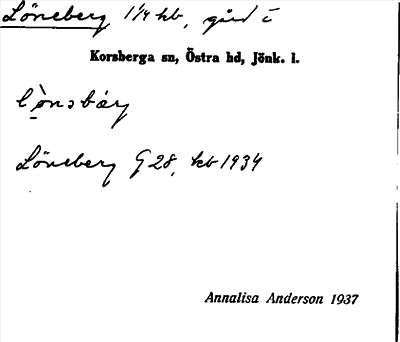 Löneberg 1 1/4 hb, gård i
Korsberga sn, Östra hd, Jönk. l.
Löneberg G 28, kb 1934
Annalisa Anderson 1937